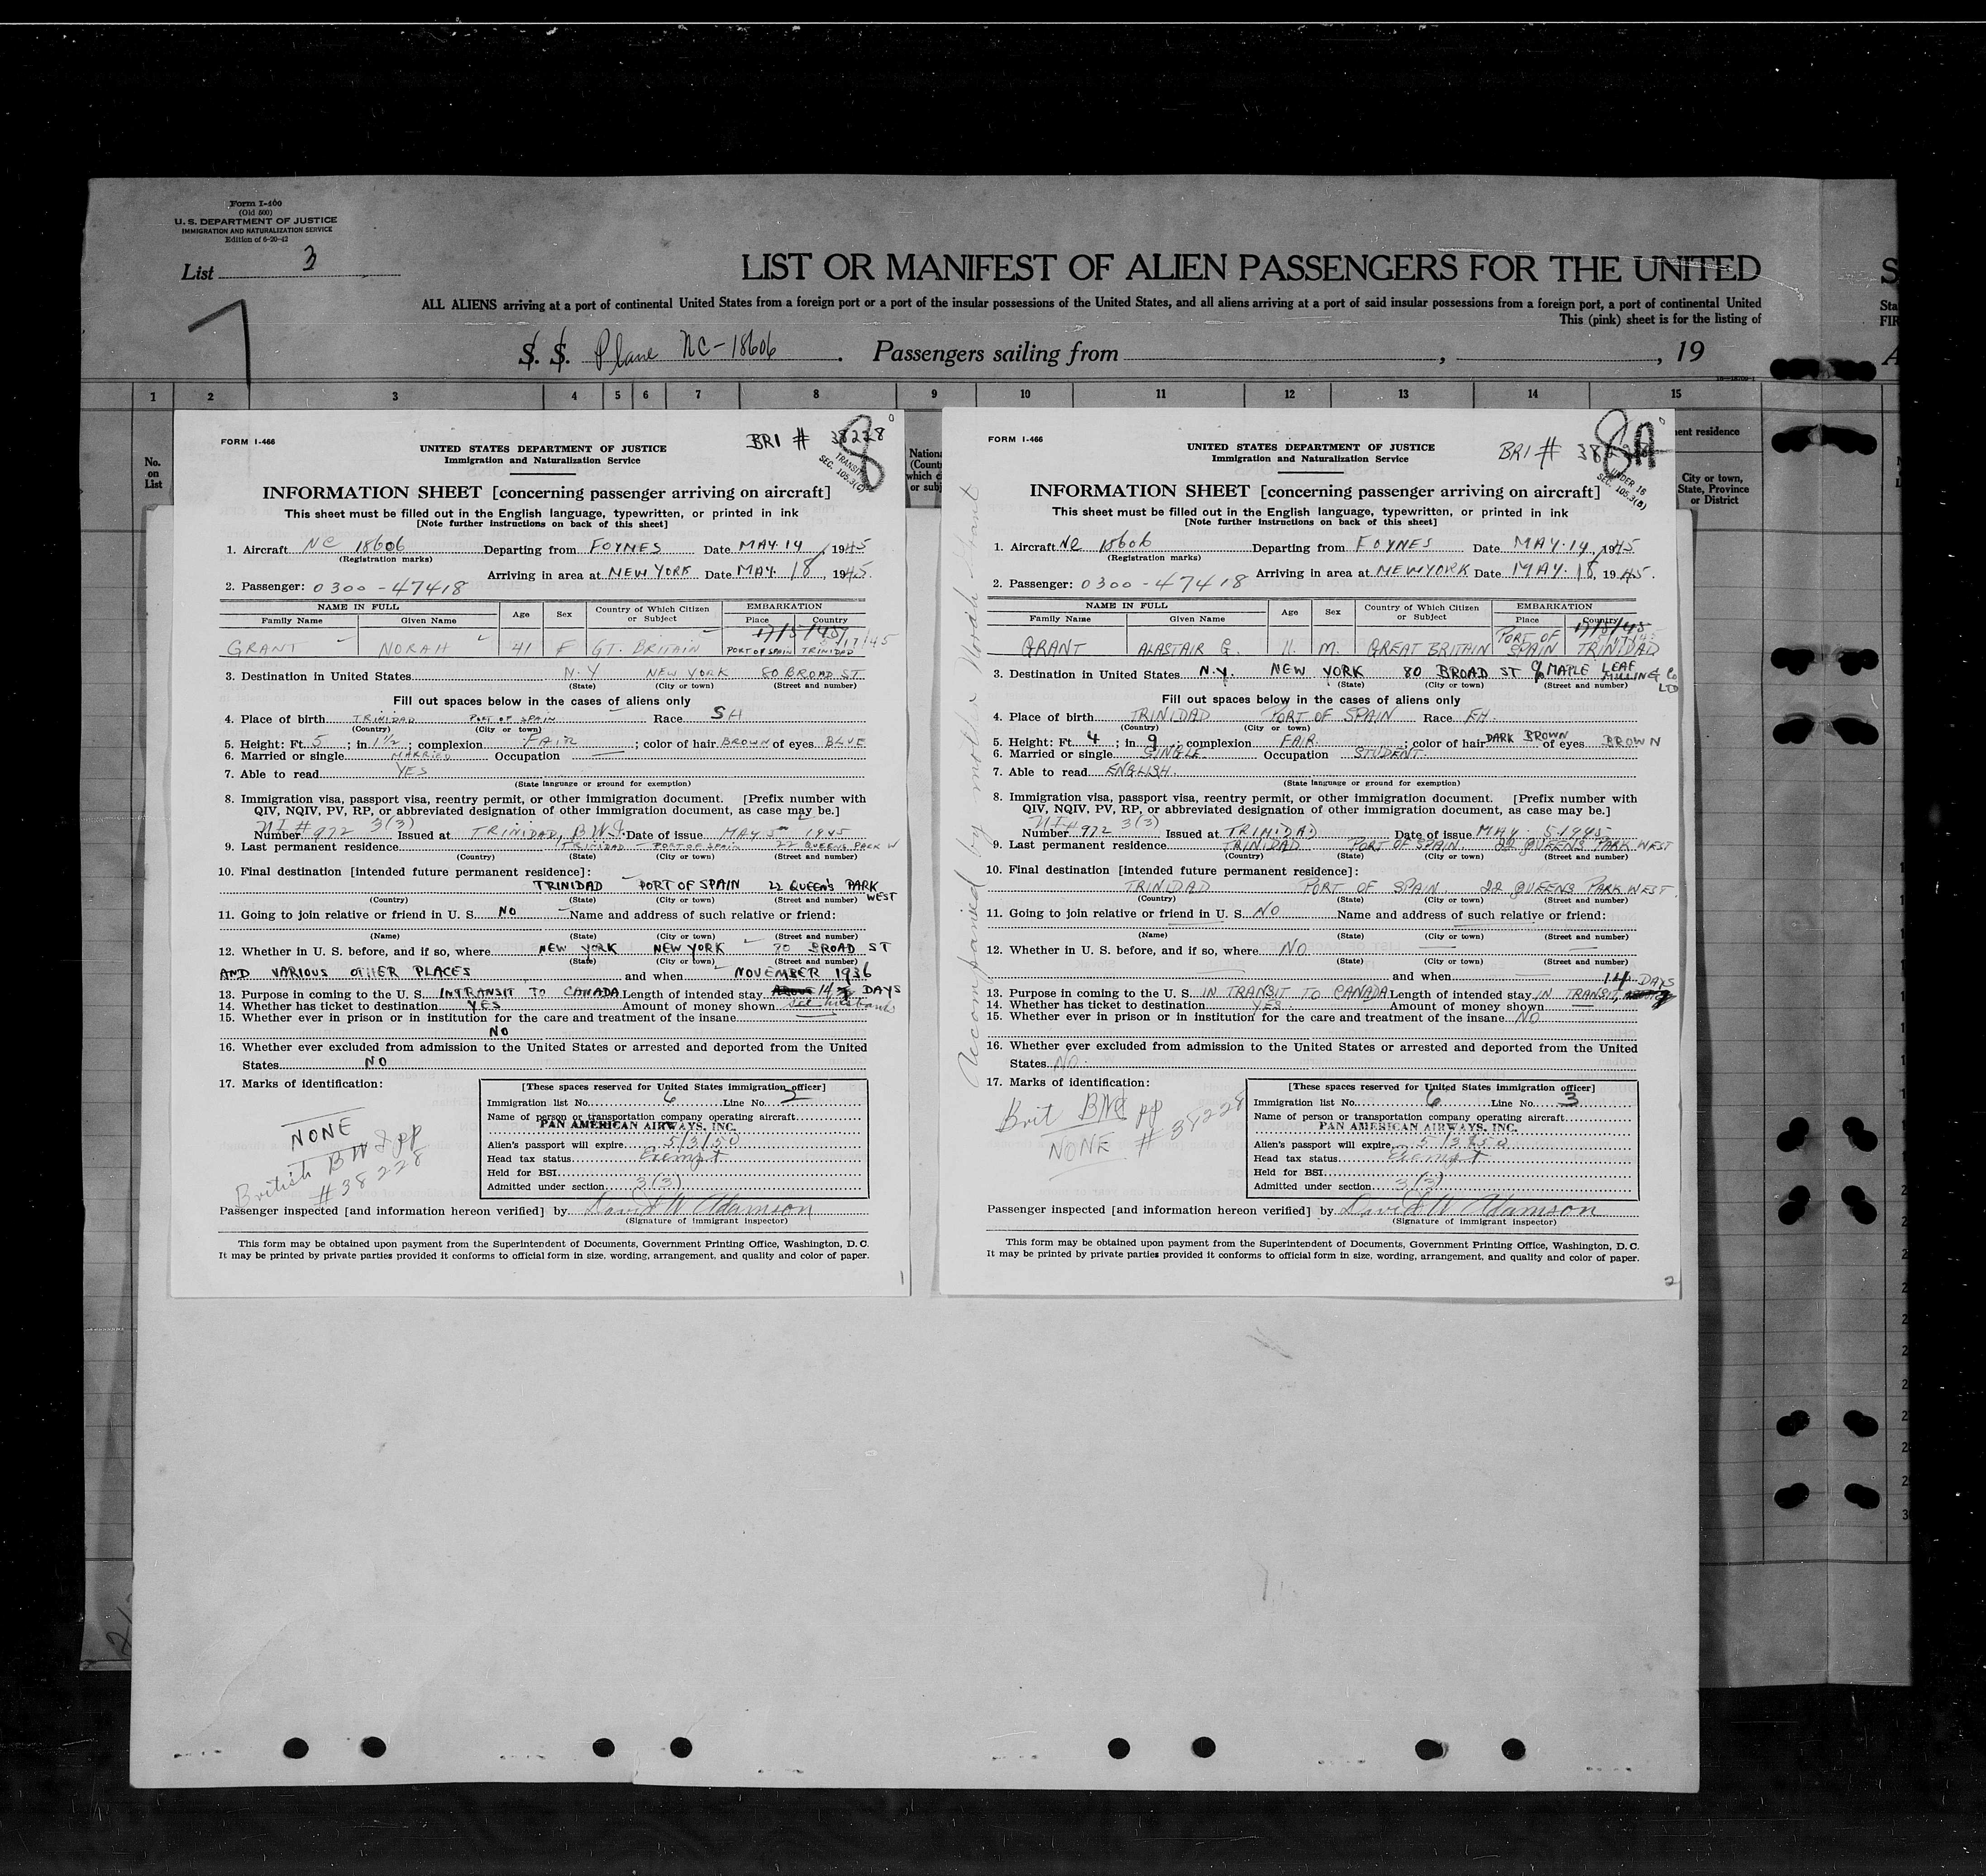 Form I-400
(Old 500)
U. S. DEPARTMENT OF JUSTICE
IMMIGRATION AND NATURALIZATION SERVICE
Edition of 6-20-42
List 3
LIST OR MANIFEST OF ALIEN PASSENGERS FOR THE UNITED
ALL ALIENS arriving at a port of continental United States from a foreign port or a port of the insular possessions of the United States, and all aliens arriving at a port of said insular possessions from a foreign port, a port of continental United
This (pink) sheet is for the listing of
S. S. Plane NC-18606 . Passengers sailing from , , 19
S
Sta
FIR
A
1 2 3 4 5 6 7 8 9 10 11 12 13 14 15
No.
on
List
ent residence
City or town,
State, Province
or District
FORM I-466
BRI # 38228
8
TRANSIT
SEC. 105.3(C)
UNITED STATES DEPARTMENT OF JUSTICE
Immigration and Naturalization Service
INFORMATION SHEET [concerning passenger arriving on aircraft]
This sheet must be filled out in the English language, typewritten, or printed in ink
[Note further instructions on back of this sheet]
1. Aircraft NC 18606 Departing from FOYNES Date MAY 14, 1945
(Registration marks)
Arriving in area at NEW YORK Date MAY 18, 1945.
2. Passenger: 0300-47418
NAME IN FULL Age Sex Country of Which Citizen or Subject EMBARKATION
Family Name Given Name Place Country
17/5/45
GRANT NORAH 41 F GT. BRITAIN PORT OF SPAIN TRINIDAD
3. Destination in United States N.Y NEW YORK 80 BROAD ST.
(State) (City or town) (Street and number)
Fill out spaces below in the cases of aliens only
4. Place of birth TRINIDAD PORT OF SPAIN Race SH
(Country) (City or town)
5. Height: Ft. 5; in 1½; complexion FAIR; color of hair BROWN of eyes BLUE
6. Married or single MARRIED Occupation
7. Able to read YES
(State language or ground for exemption)
8. Immigration visa, passport visa, reentry permit, or other immigration document. [Prefix number with
QIV, NQIV, PV, RP, or abbreviated designation of other immigration document, as case may be.]
Number 972 3(3) Issued at TRINIDAD, B.W.I. Date of issue MAY 5 1945
9. Last permanent residence TRINIDAD PORT OF SPAIN 22 QUEENS PARK W
(Country) (State) (City or town) (Street and number)
10. Final destination [intended future permanent residence]:
TRINIDAD PORT OF SPAIN 22 QUEEN'S PARK WEST
(Country) (State) (City or town) (Street and number)
11. Going to join relative or friend in U. S. NO Name and address of such relative or friend:
(Name) (State) (City or town) (Street and number)
12. Whether in U. S. before, and if so, where NEW YORK NEW YORK 80 BROAD ST
(State) (City or town) (Street and number)
AND VARIOUS OTHER PLACES and when NOVEMBER 1936
13. Purpose in coming to the U. S. INTRANSIT TO CANADA Length of intended stay 14 DAYS
14. Whether has ticket to destination YES Amount of money shown see husband
15. Whether ever in prison or in institution for the care and treatment of the insane
NO
16. Whether ever excluded from admission to the United States or arrested and deported from the United
States NO
17. Marks of identification:
NONE
British BWI pp
#38228
[These spaces reserved for United States immigration officer]
Immigration list No. 6 Line No. 2
Name of person or transportation company operating aircraft
PAN AMERICAN AIRWAYS, INC.
Alien's passport will expire 5/3/50
Head tax status Exempt
Held for BSI
Admitted under section 3(3)
Passenger inspected [and information hereon verified] by David W Adamson
(Signature of immigrant inspector)
This form may be obtained upon payment from the Superintendent of Documents, Government Printing Office, Washington, D. C.
It may be printed by private parties provided it conforms to official form in size, wording, arrangement, and quality and color of paper.
1
FORM I-466
BRI # 38
8A
UNDER 16
SEC. 105.3(B)
UNITED STATES DEPARTMENT OF JUSTICE
Immigration and Naturalization Service
INFORMATION SHEET [concerning passenger arriving on aircraft]
This sheet must be filled out in the English language, typewritten, or printed in ink
[Note further instructions on back of this sheet]
Accompanied by mother Norah Grant
1. Aircraft NC 18606 Departing from FOYNES Date MAY 14, 1945
(Registration marks)
Arriving in area at NEW YORK Date MAY. 18, 1945.
2. Passenger: 0300-47418
NAME IN FULL Age Sex Country of Which Citizen or Subject EMBARKATION
Family Name Given Name Place Country
GRANT ALASTAIR G. 11. M. GREAT BRITAIN PORT OF SPAIN TRINIDAD
3. Destination in United States N.Y. NEW YORK 80 BROAD ST c/o MAPLE LEAF MILLING Co LTD
(State) (City or town) (Street and number)
Fill out spaces below in the cases of aliens only
4. Place of birth TRINIDAD PORT OF SPAIN Race EH.
(Country) (City or town)
5. Height: Ft. 4; in 9; complexion FAIR; color of hair DARK BROWN of eyes BROWN
6. Married or single SINGLE. Occupation STUDENT.
7. Able to read ENGLISH.
(State language or ground for exemption)
8. Immigration visa, passport visa, reentry permit, or other immigration document. [Prefix number with
QIV, NQIV, PV, RP, or abbreviated designation of other immigration document, as case may be.]
Number 972 3(3) Issued at TRINIDAD Date of issue MAY 5 1945
9. Last permanent residence TRINIDAD PORT OF SPAIN. 22 QUEENS PARK WEST
(Country) (State) (City or town) (Street and number)
10. Final destination [intended future permanent residence]:
TRINIDAD PORT OF SPAIN. 22 QUEENS PARK WEST.
(Country) (State) (City or town) (Street and number)
11. Going to join relative or friend in U. S. NO Name and address of such relative or friend:
(Name) (State) (City or town) (Street and number)
12. Whether in U. S. before, and if so, where NO
(State) (City or town) (Street and number)
and when 14 DAYS
13. Purpose in coming to the U. S. IN TRANSIT TO CANADA Length of intended stay IN TRANSIT,
14. Whether has ticket to destination YES. Amount of money shown
15. Whether ever in prison or in institution for the care and treatment of the insane NO
16. Whether ever excluded from admission to the United States or arrested and deported from the United
States NO.
17. Marks of identification:
Brit BWI pp
NONE #38228
[These spaces reserved for United States immigration officer]
Immigration list No. 6 Line No. 3
Name of person or transportation company operating aircraft
PAN AMERICAN AIRWAYS, INC.
Alien's passport will expire 5/3/50
Head tax status Exempt
Held for BSI
Admitted under section 3(3)
Passenger inspected [and information hereon verified] by David W Adamson
(Signature of immigrant inspector)
This form may be obtained upon payment from the Superintendent of Documents, Government Printing Office, Washington, D. C.
It may be printed by private parties provided it conforms to official form in size, wording, arrangement, and quality and color of paper.
2